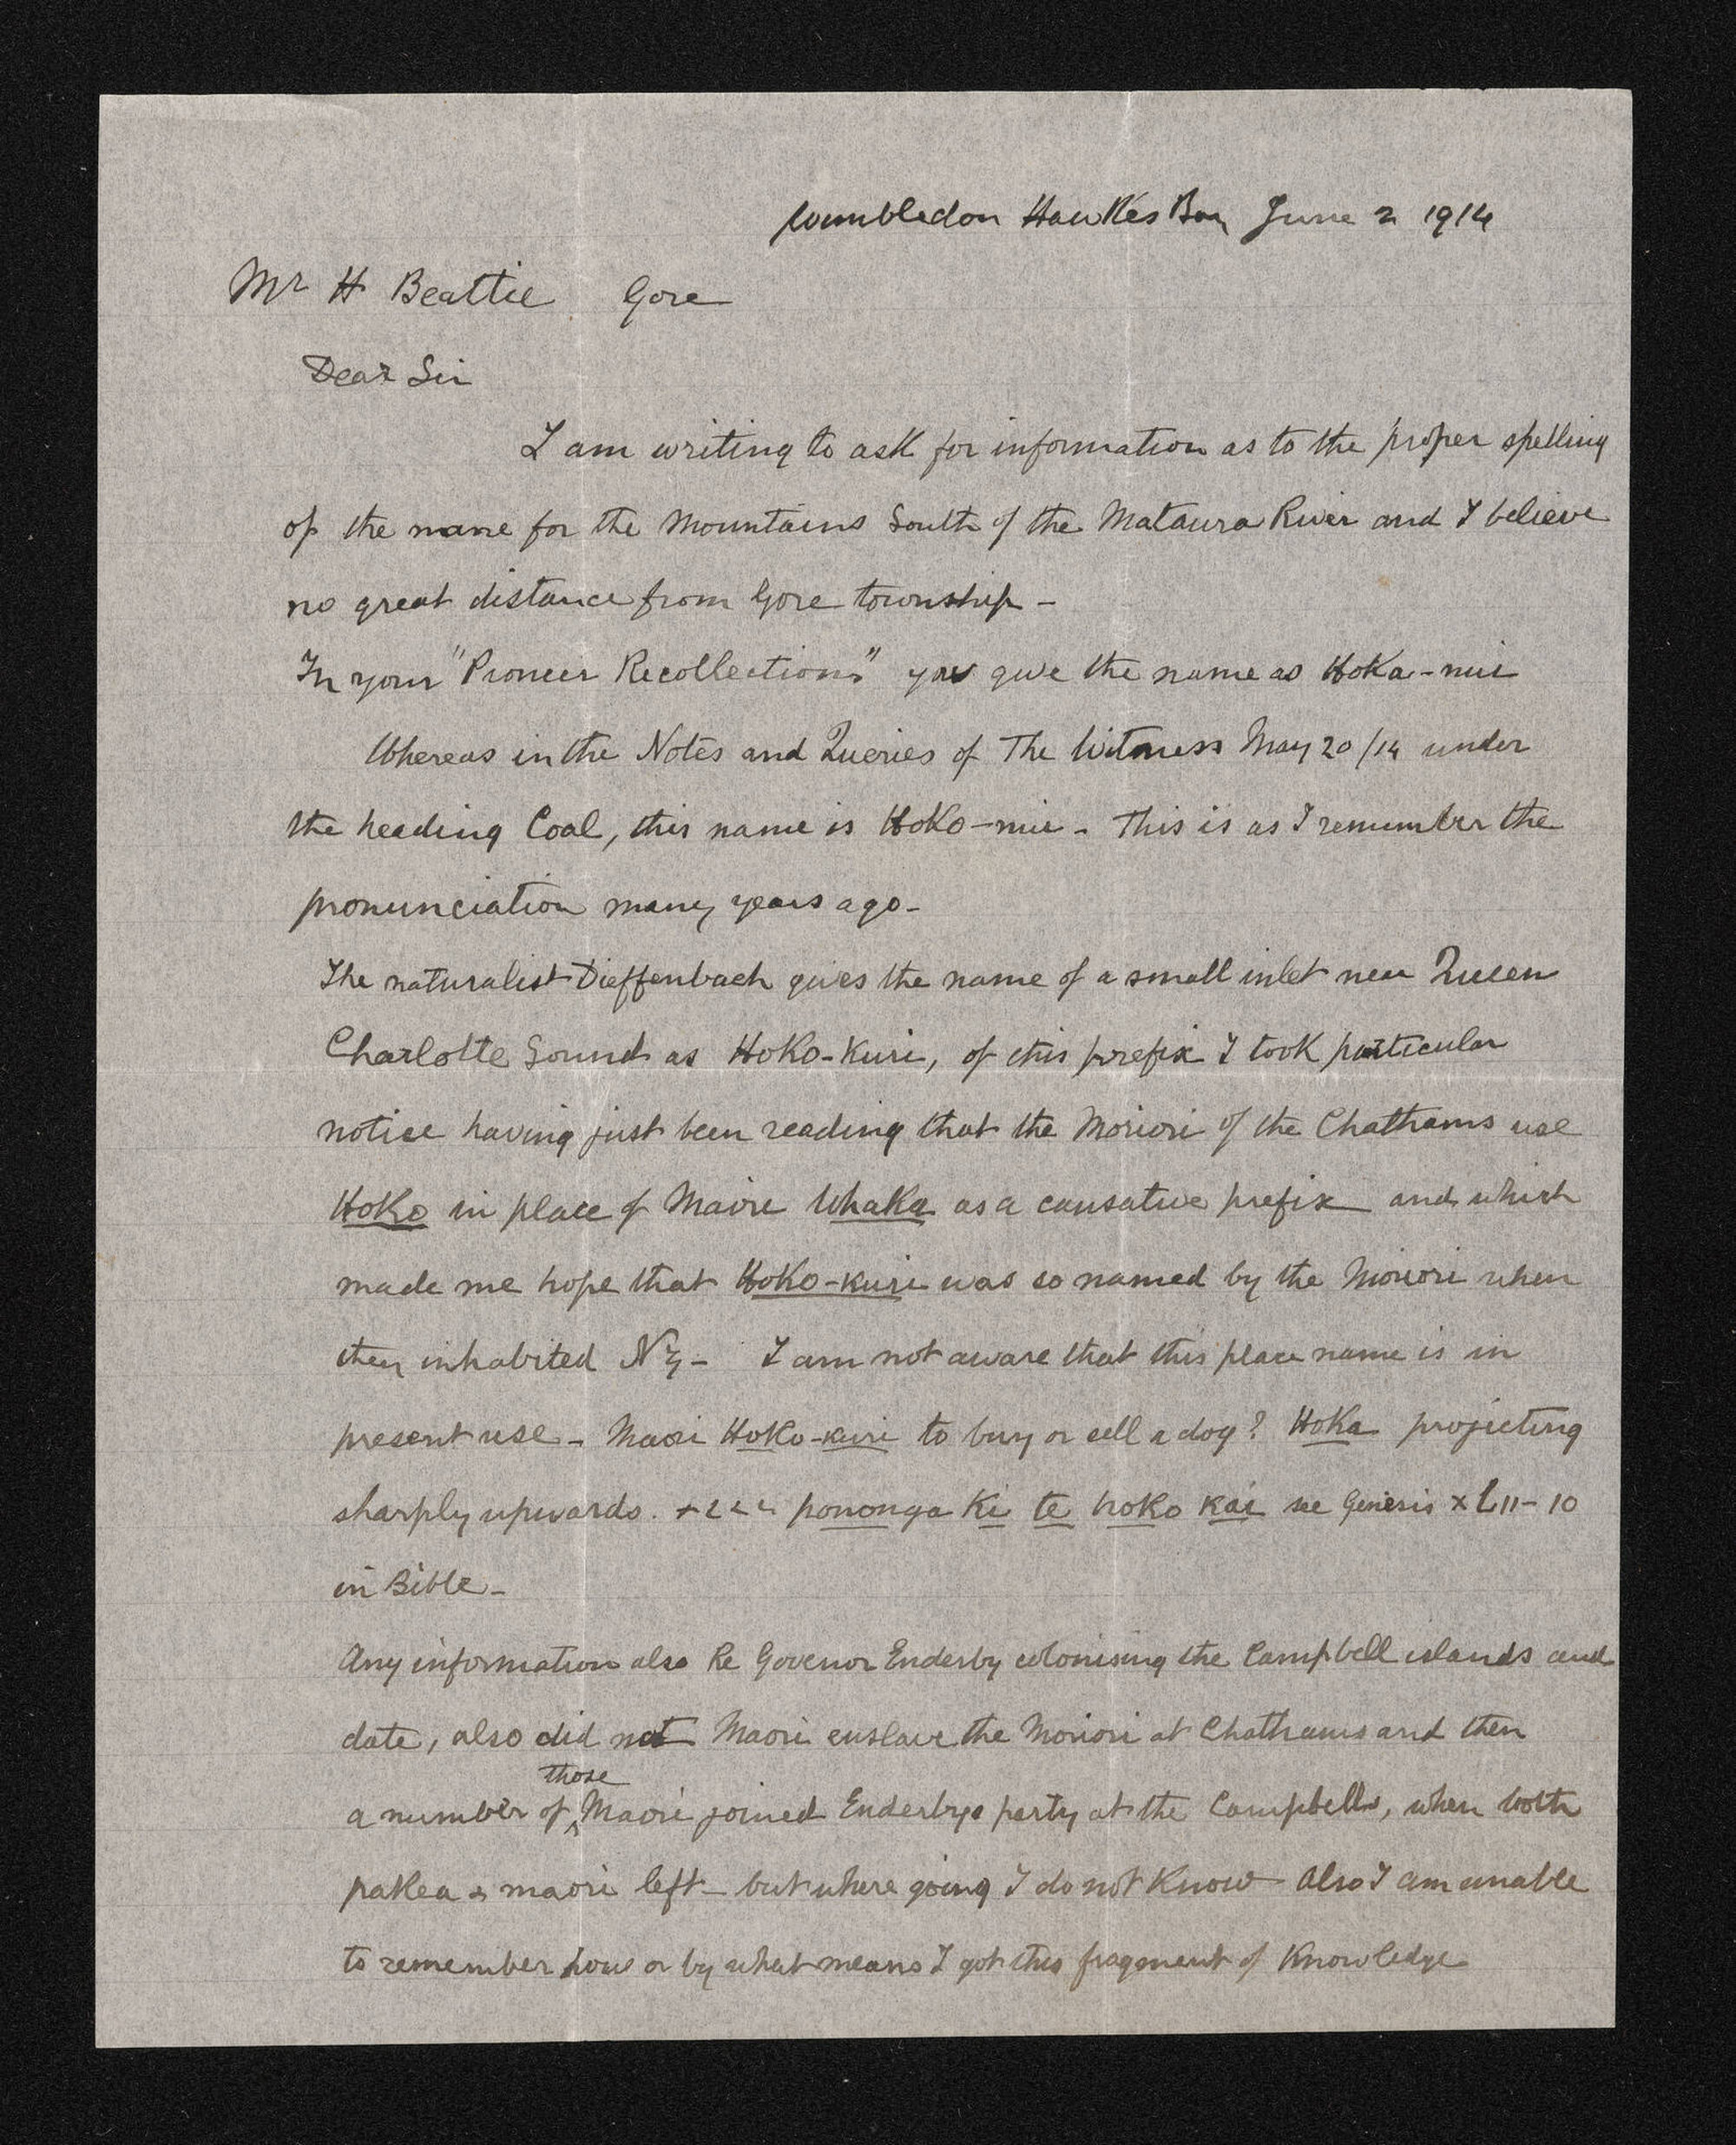 Wimbledon Hawkes Bay June 2 1914
Mr H Beattie Gore
Dear Sir
I am writing to ask for information as to the proper spelling
of the name for the Mountains South of the Mataura River and I believe
no great distance from Gore township -
In your "Pioneer Recollections" you give the name as Hoka-nui
Whereas in the Notes and Queries of The Witness May 20/14 under
the heading Coal, this name is Hoko-nui - This is as I remember the
pronunciation many years ago -
The naturalist Dieffenbach gives the name of a small inlet near Queen
Charlotte Sound as Hoko-Kuri, of this prefix I took particular
notice having just been reading that the Moriori of the Chathams use
Hoko in place of Maori Whaka as a causative prefix and which
made me hope that Hoko-kuri was so named by the Moriori when
they inhabited NZ - I am not aware that this place name is in
present use - Maori Hoko-kuri to buy or sell a dog? Hoka projecting
sharply upwards. pononga Ki te hoko kai see Genesis XLII - 10
in Bible -
Any information also Re Govenor Enderby colonising the Campbell islands and
date, also did not Maori enslave the Moriori at Chathams and then
a number of those Maori joined Enderbys party at the Campbells, when both
pakea & maori left - but where going I do not Know Also I am unable
to remember how or by what means I got this fragment of Knowledge